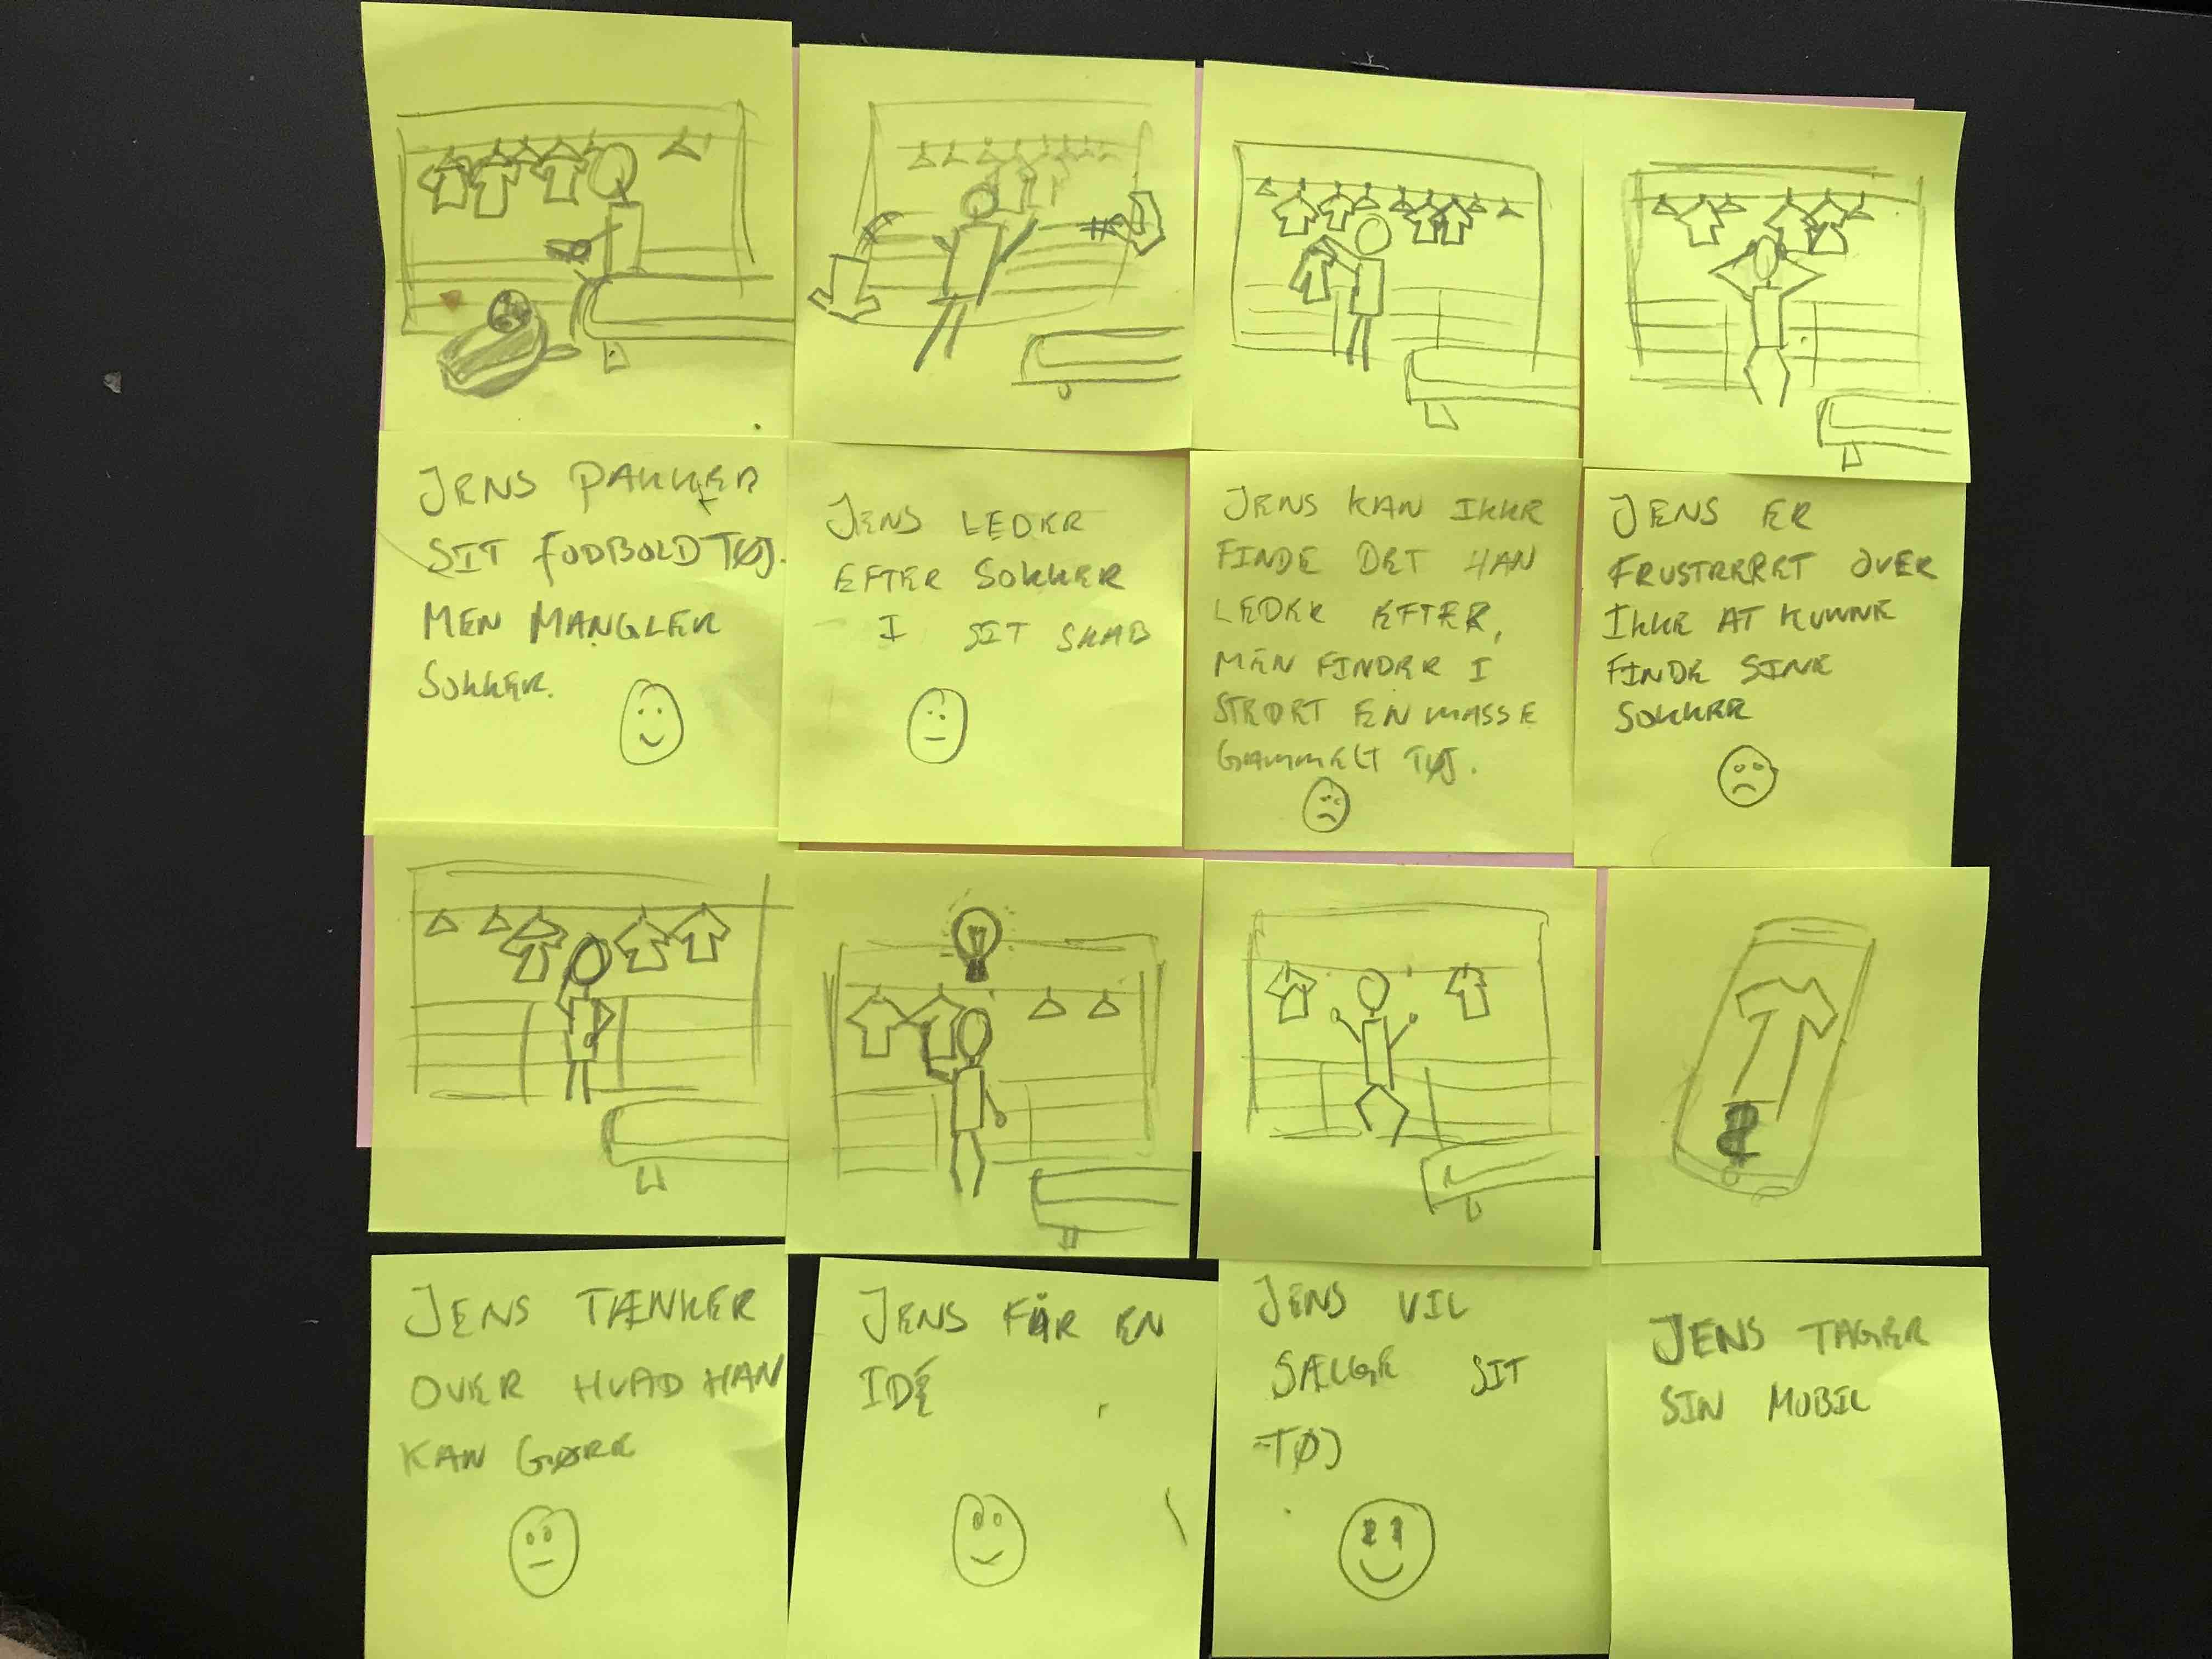 JENS PAKKER
SIT FODBOLDTØJ.
MEN MANGLER
SOKKER.
JENS LEDER
EFTER SOKKER
I SIT SKAB
JENS KAN IKKE
FINDE DET HAN
LEDER EFTER,
MEN FINDER I
STEDET EN MASSE
GAMMELT TØJ.
JENS ER
FRUSTRERET OVER
IKKE AT KUNNE
FINDE SINE
SOKKER
JENS TÆNKER
OVER HVAD HAN
KAN GØRE
JENS FÅR EN
IDÉ
JENS VIL
SÆLGE SIT
TØJ
JENS TAGER
SIN MOBIL